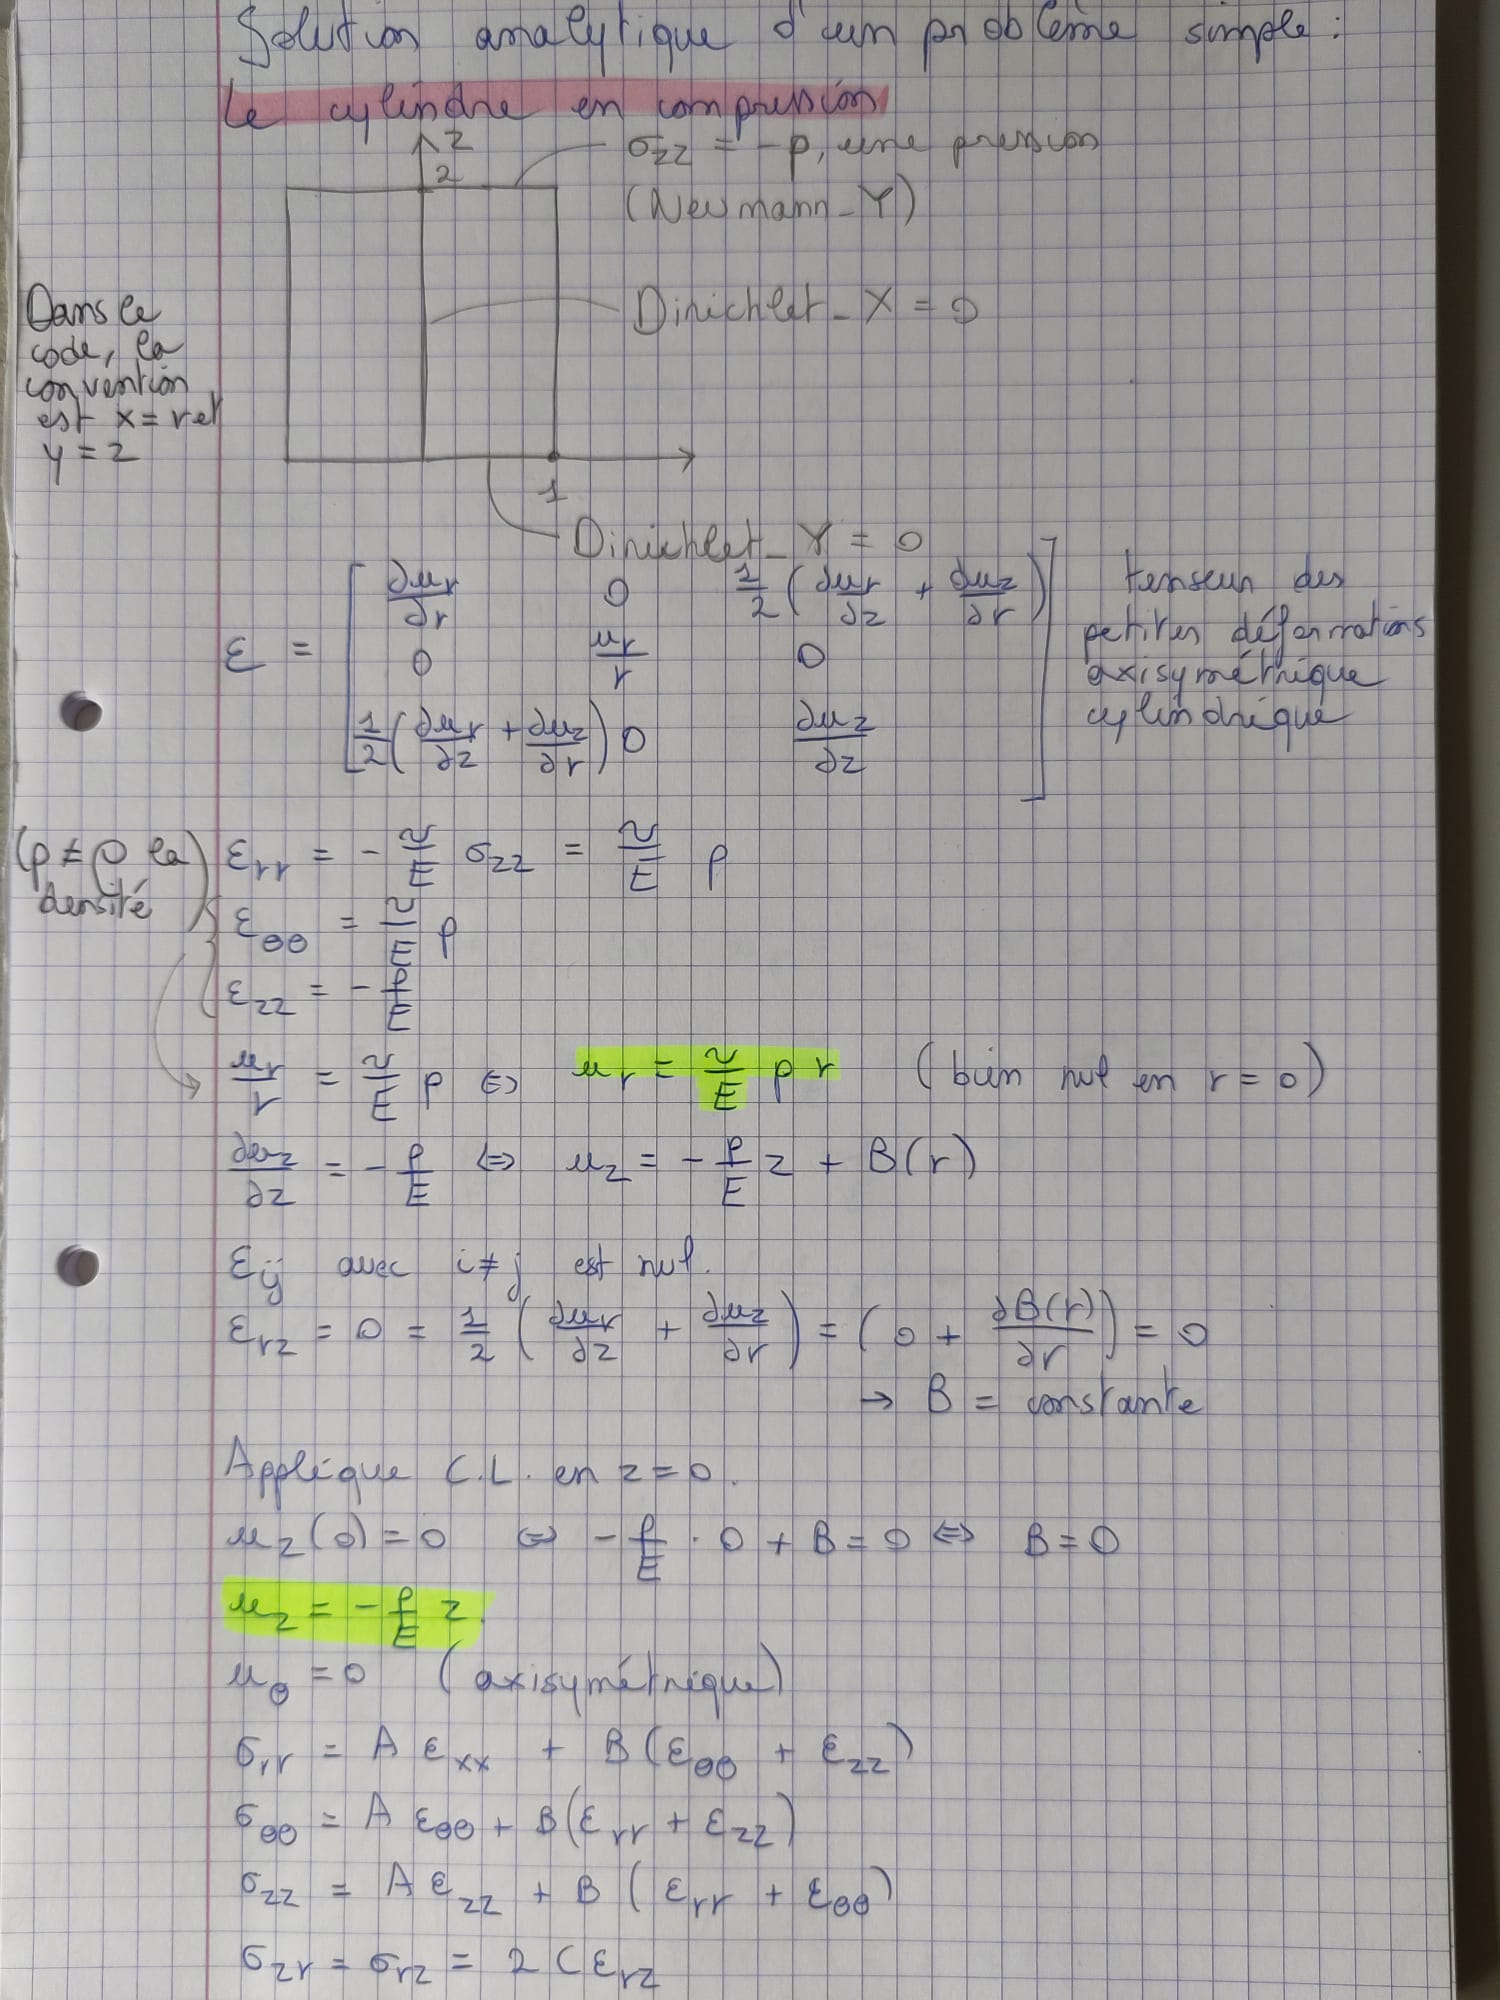 Solution analytique d'un problème simple :
Le cylindre en compression
z
2
σzz = -p, une pression
(Neumann_Y)
Dirichlet_X = 0
Dans le
code, la
convention
est x = r et
y = z
1
Dirichlet_Y = 0
ε = [ ∂ur/∂r 0 1/2 (∂ur/∂z + ∂uz/∂r)
0 ur/r 0
1/2 (∂ur/∂z + ∂uz/∂r) 0 ∂uz/∂z ]
tenseur des
petites déformations
axisymétrique
cylindrique
(p ≠ ρ la
densité)
εrr = - ν/E σzz = ν/E p
εθθ = ν/E p
εzz = - p/E
ur/r = ν/E p ⇔ ur = ν/E p r (bien nul en r = 0)
∂uz/∂z = - p/E ⇔ uz = - p/E z + B(r)
εij avec i ≠ j est nul.
εrz = 0 = 1/2 (∂ur/∂z + ∂uz/∂r) = (0 + ∂B(r)/∂r) = 0
→ B = constante
Applique C.L. en z = 0.
uz(0) = 0 ⇔ - p/E . 0 + B = 0 ⇔ B = 0
uz = - p/E z.
uθ = 0 (axisymétrique)
σrr = A εxx + B (εθθ + εzz)
σθθ = A εθθ + B (εrr + εzz)
σzz = A εzz + B (εrr + εθθ)
σzr = σrz = 2 C εrz